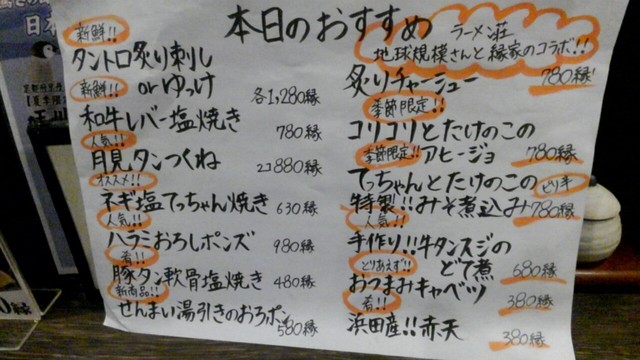 本日のおすすめ
新鮮!!
タントロ炙り刺し
新鮮!! orゆっけ
各1,280縁
和牛レバー塩焼き
780縁
人気!!
月見タンつくね
2コ880縁
オススメ!!
ネギ塩てっちゃん焼き
630縁
人気!!
ハラミおろしポンズ
980縁
肴!!
豚タン軟骨塩焼き
480縁
新商品!!
せんまい湯引きのおろポン
580縁
ラーメン荘
地球規模さんと縁家のコラボ!!
炙りチャーシュー
780縁
季節限定!!
コリコリとたけのこの
季節限定!! アヒージョ
780縁
てっちゃんとたけのこの ピリ辛
特製!!みそ煮込み 780縁
人気!!
手作り!!牛タンスジの
どて煮
680縁
とりあえず!!
おつまみキャベツ
380縁
肴!!
浜田産!!赤天
380縁